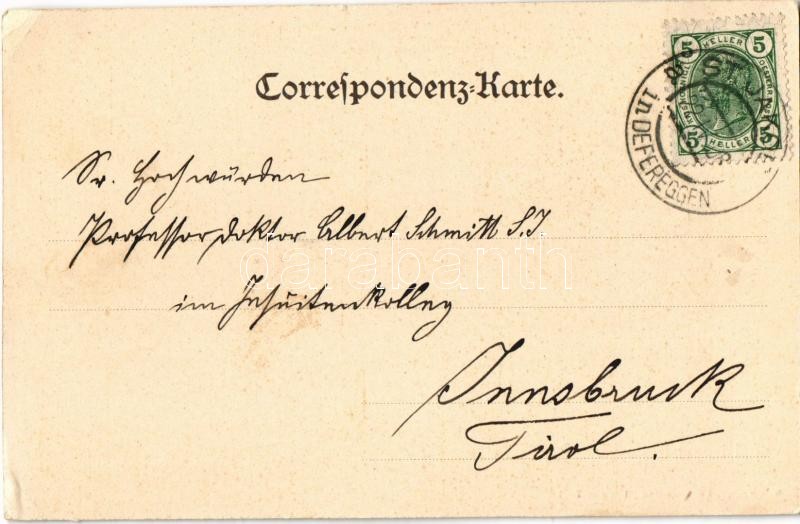 Correspondenz-Karte.
5 HELLER 5
5 HELLER 5
ST.
in DEFEREGGEN
Sr. Hochwürden
Professor Doktor Albert Schmitt S.J
im Jesuitenkolleg
Innsbruck
Tirol.
darabanth